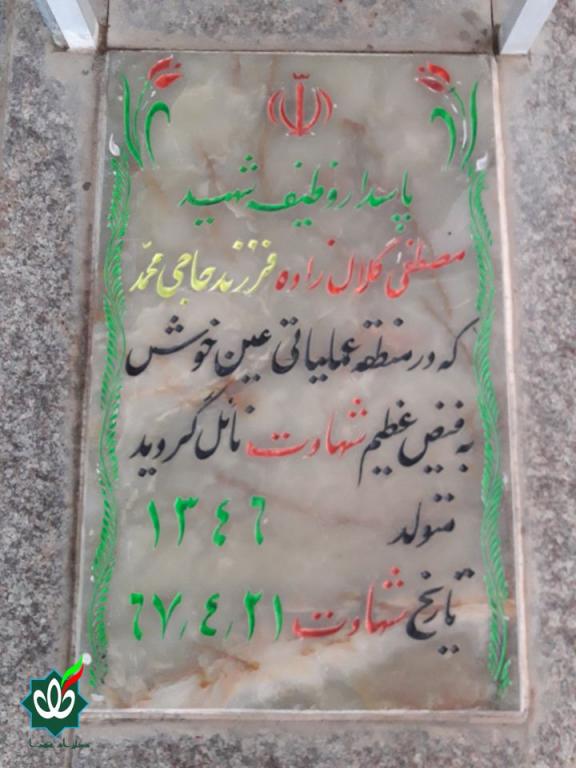 پاسدار وظیفه شهید
مصطفی گلال زاده فرزند حاجی محمد
که در منطقه عملیاتی عین خوش
به فیض عظیم شهادت نائل گردید
متولد ۱۳٤٦
تاریخ شهادت ٦۷٫٤٫۲۱